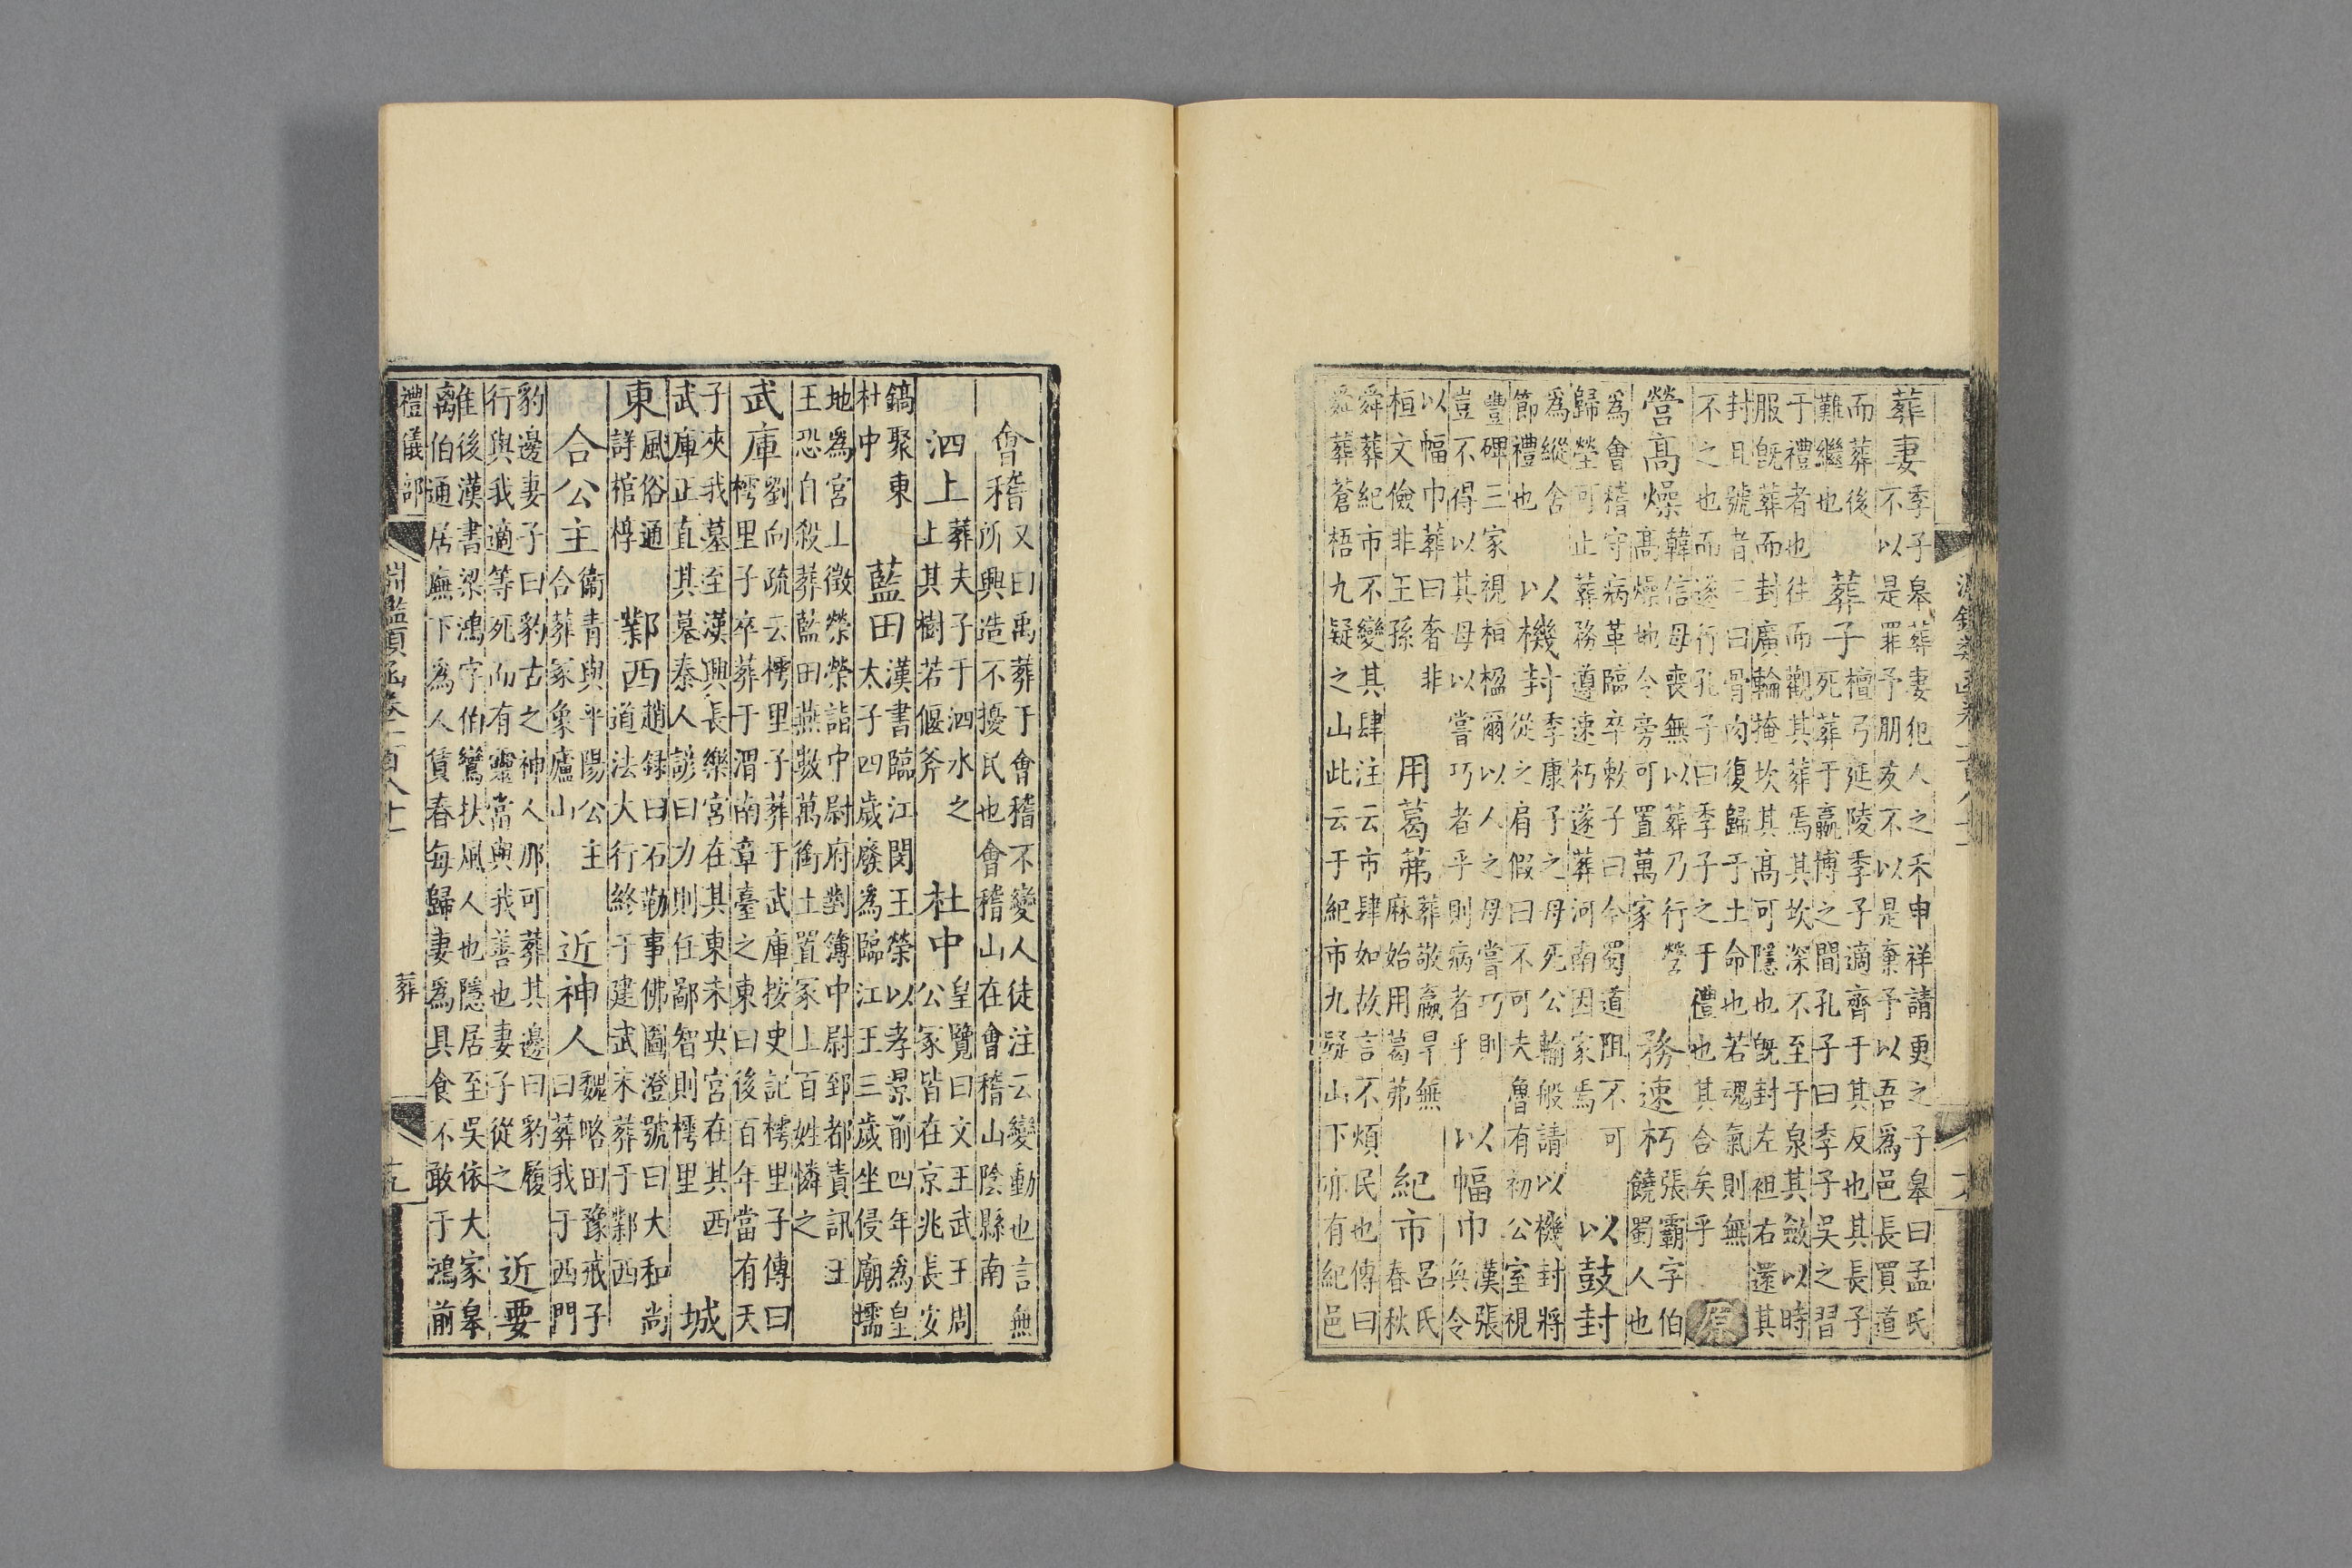 葬妻
季子皋葬妻犯人之禾申祥請更之子皋曰孟氏
不以是罪予朋友不以是棄予以吾為邑長買道
而葬後
難繼也
葬子
檀弓延陵季子適齊于其反也其長子
死葬于嬴博之間孔子曰季子吳之習
于禮者也往而觀其葬焉其坎深不至于泉其斂以時
服既葬而封廣輪掩坎其高可隱也既封左袒右還其
封且號者三曰骨肉復歸于土命也若魂氣則無
不之也而遂行孔子曰季子之于禮也其合矣乎
原
營高燥
韓信母喪無以葬乃行營
高燥地令旁可置萬家
務速朽
張霸字伯
饒蜀人也
為會稽守病革臨卒敕子曰今蜀道阻不可
歸塋可止葬務遵速朽遂葬河南因家焉
以鼓封
為縱舍
節禮也
以機封
季康子之母死公輸般請以機封將
從之肩假曰不可夫魯有初公室視
豐碑三家視桓楹爾以人之母嘗巧則
豈不得以其母以嘗巧者乎則病者乎
以幅巾
漢張
奐令
以幅巾葬曰奢非
桓文儉非王孫
用葛茀
葬敬嬴旱無
麻始用葛茀
紀市
呂氏
春秋
舜葬紀市不變其肆注云市肆如故言不煩民也傳曰
舜葬蒼梧九疑之山此云于紀市九疑山下亦有紀邑
會稽
又曰禹葬于會稽不變人徒注云變動也言無
所興造不擾民也會稽山在會稽山陰縣南
泗上
葬夫子于泗水之
上其樹若偃斧
杜中
皇覽曰文王武王周
公冢皆在京兆長安
鎬聚東
杜中
藍田
漢書臨江閔王榮以孝景前四年為皇
太子四歲廢為臨江王三歲坐侵廟壖
地為宮上徵榮榮詣中尉府對簿中尉郅都責訊王
王恐自殺葬藍田燕數萬銜土置冢上百姓憐之
武庫
劉向疏云樗里子葬于武庫按史記樗里子傳曰
樗里子卒葬于渭南章臺之東曰後百年當有天
子夾我墓至漢興長樂宮在其東未央宮在其西
武庫正直其墓秦人諺曰力則任鄙智則樗里
城
東
風俗通
詳棺椁
鄴西
趙錄曰石勒事佛圖澄號曰大和尚
道法大行終于建武末葬于鄴西
合公主
衞青與平陽公主
合葬冢象廬山
近神人
魏略田豫戒子
曰葬我于西門
豹邊妻子曰豹古之神人那可葬其邊曰豹履
行與我適等死而有靈當與我善也妻子從之
近要
離
後漢書梁鴻字伯鸞扶風人也隱居至吳依大家皋
伯通居廡下為人賃舂每歸妻為具食不敢于鴻前
禮儀部
淵鑑類函卷一百八十一
葬